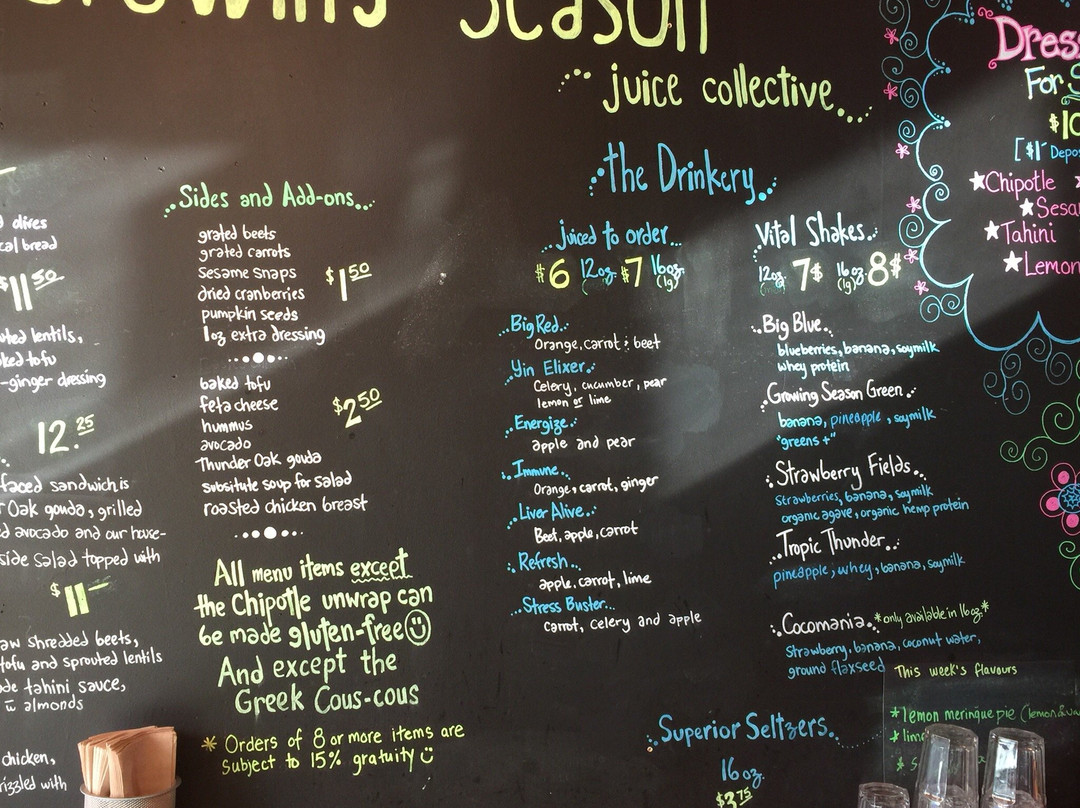 Growing Season
juice collective
d olives
cal bread
$11.50
uted lentils,
ked tofu
-ginger dressing
12.25
faced sandwich is
r Oak gouda, grilled
ed avocado and our house-
side salad topped with
$11-
aw shredded beets,
tofu and sprouted lentils
de tahini sauce,
almonds
chicken,
rizzled with
Sides and Add-ons
grated beets
grated carrots
sesame snaps
dried cranberries
pumpkin seeds
1oz extra dressing
$1.50
baked tofu
feta cheese
hummus
avocado
Thunder Oak gouda
subsitute soup for salad
roasted chicken breast
$2.50
All menu items except
the Chipotle unwrap can
be made gluten-free
And except the
Greek Cous-cous
* Orders of 8 or more items are
subject to 15% gratuity
the Drinkery
Juiced to order
$6 12oz. $7 16oz.
(lg)
Big Red
Orange, carrot & beet
Yin Elixer
Celery, cucumber, pear
lemon or lime
Energize
apple and pear
Immune
Orange, carrot, ginger
Liver Alive
Beet, apple, carrot
Refresh
apple, carrot, lime
Stress Buster
carrot, celery and apple
Vital Shakes
12oz. 7$ 16oz. 8$
(lg)
Big Blue
blueberries, banana, soymilk
whey protein
Growing Season Green
banana, pineapple, soymilk
"greens+"
Strawberry Fields
strawberries, banana, soymilk
organic agave, organic hemp protein
Tropic Thunder
pineapple, whey, banana, soymilk
Cocomania *only available in 16oz*
Strawberry, banana, coconut water,
ground flaxseed
Superior Seltzers
16oz.
$3.75
This week's flavours
*lemon meringue pie (lemon &
Dress
For S
$10
[$1- Depos
Chipotle
Sesa
Tahini
Lemon